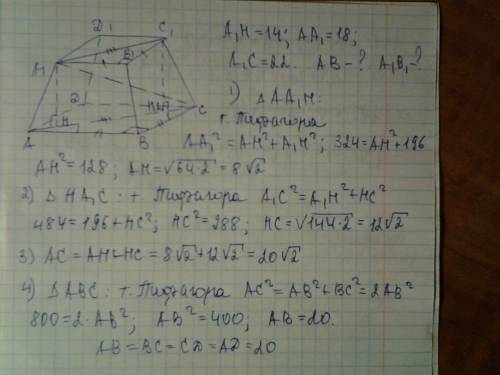 D₁ C₁
A₁ B₁
D C
H
A B
A₁H=14; AA₁=18;
A₁C=22. AB-? A₁B₁-?
1) △AA₁H:
т. Пифагора
AA₁²=AH²+A₁H²; 324=AH²+196
AH²=128; AH=√64·2=8√2
2) △HA₁C: т. Пифагора A₁C²=A₁H²+HC²
484=196+HC²; HC²=288; HC=√144·2=12√2
3) AC=AH+HC=8√2+12√2=20√2
4) △ABC: т. Пифагора AC²=AB²+BC²=2AB²
800=2·AB²; AB²=400; AB=20.
AB=BC=CD=AD=20